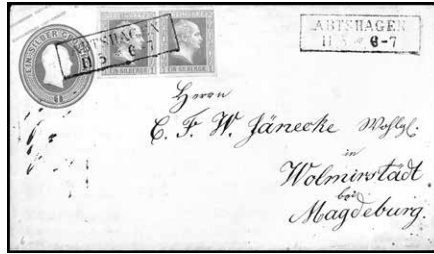 ABTSHAGEN
11 5 * 6-7
ABTSHAGEN
11 5 * 6-7
EIN SILBERGR.
EIN SILBERGR. 1
Herrn
C. F. W. Jänecke Wohlgb.
in
Wolmirstädt
bei
Magdeburg.